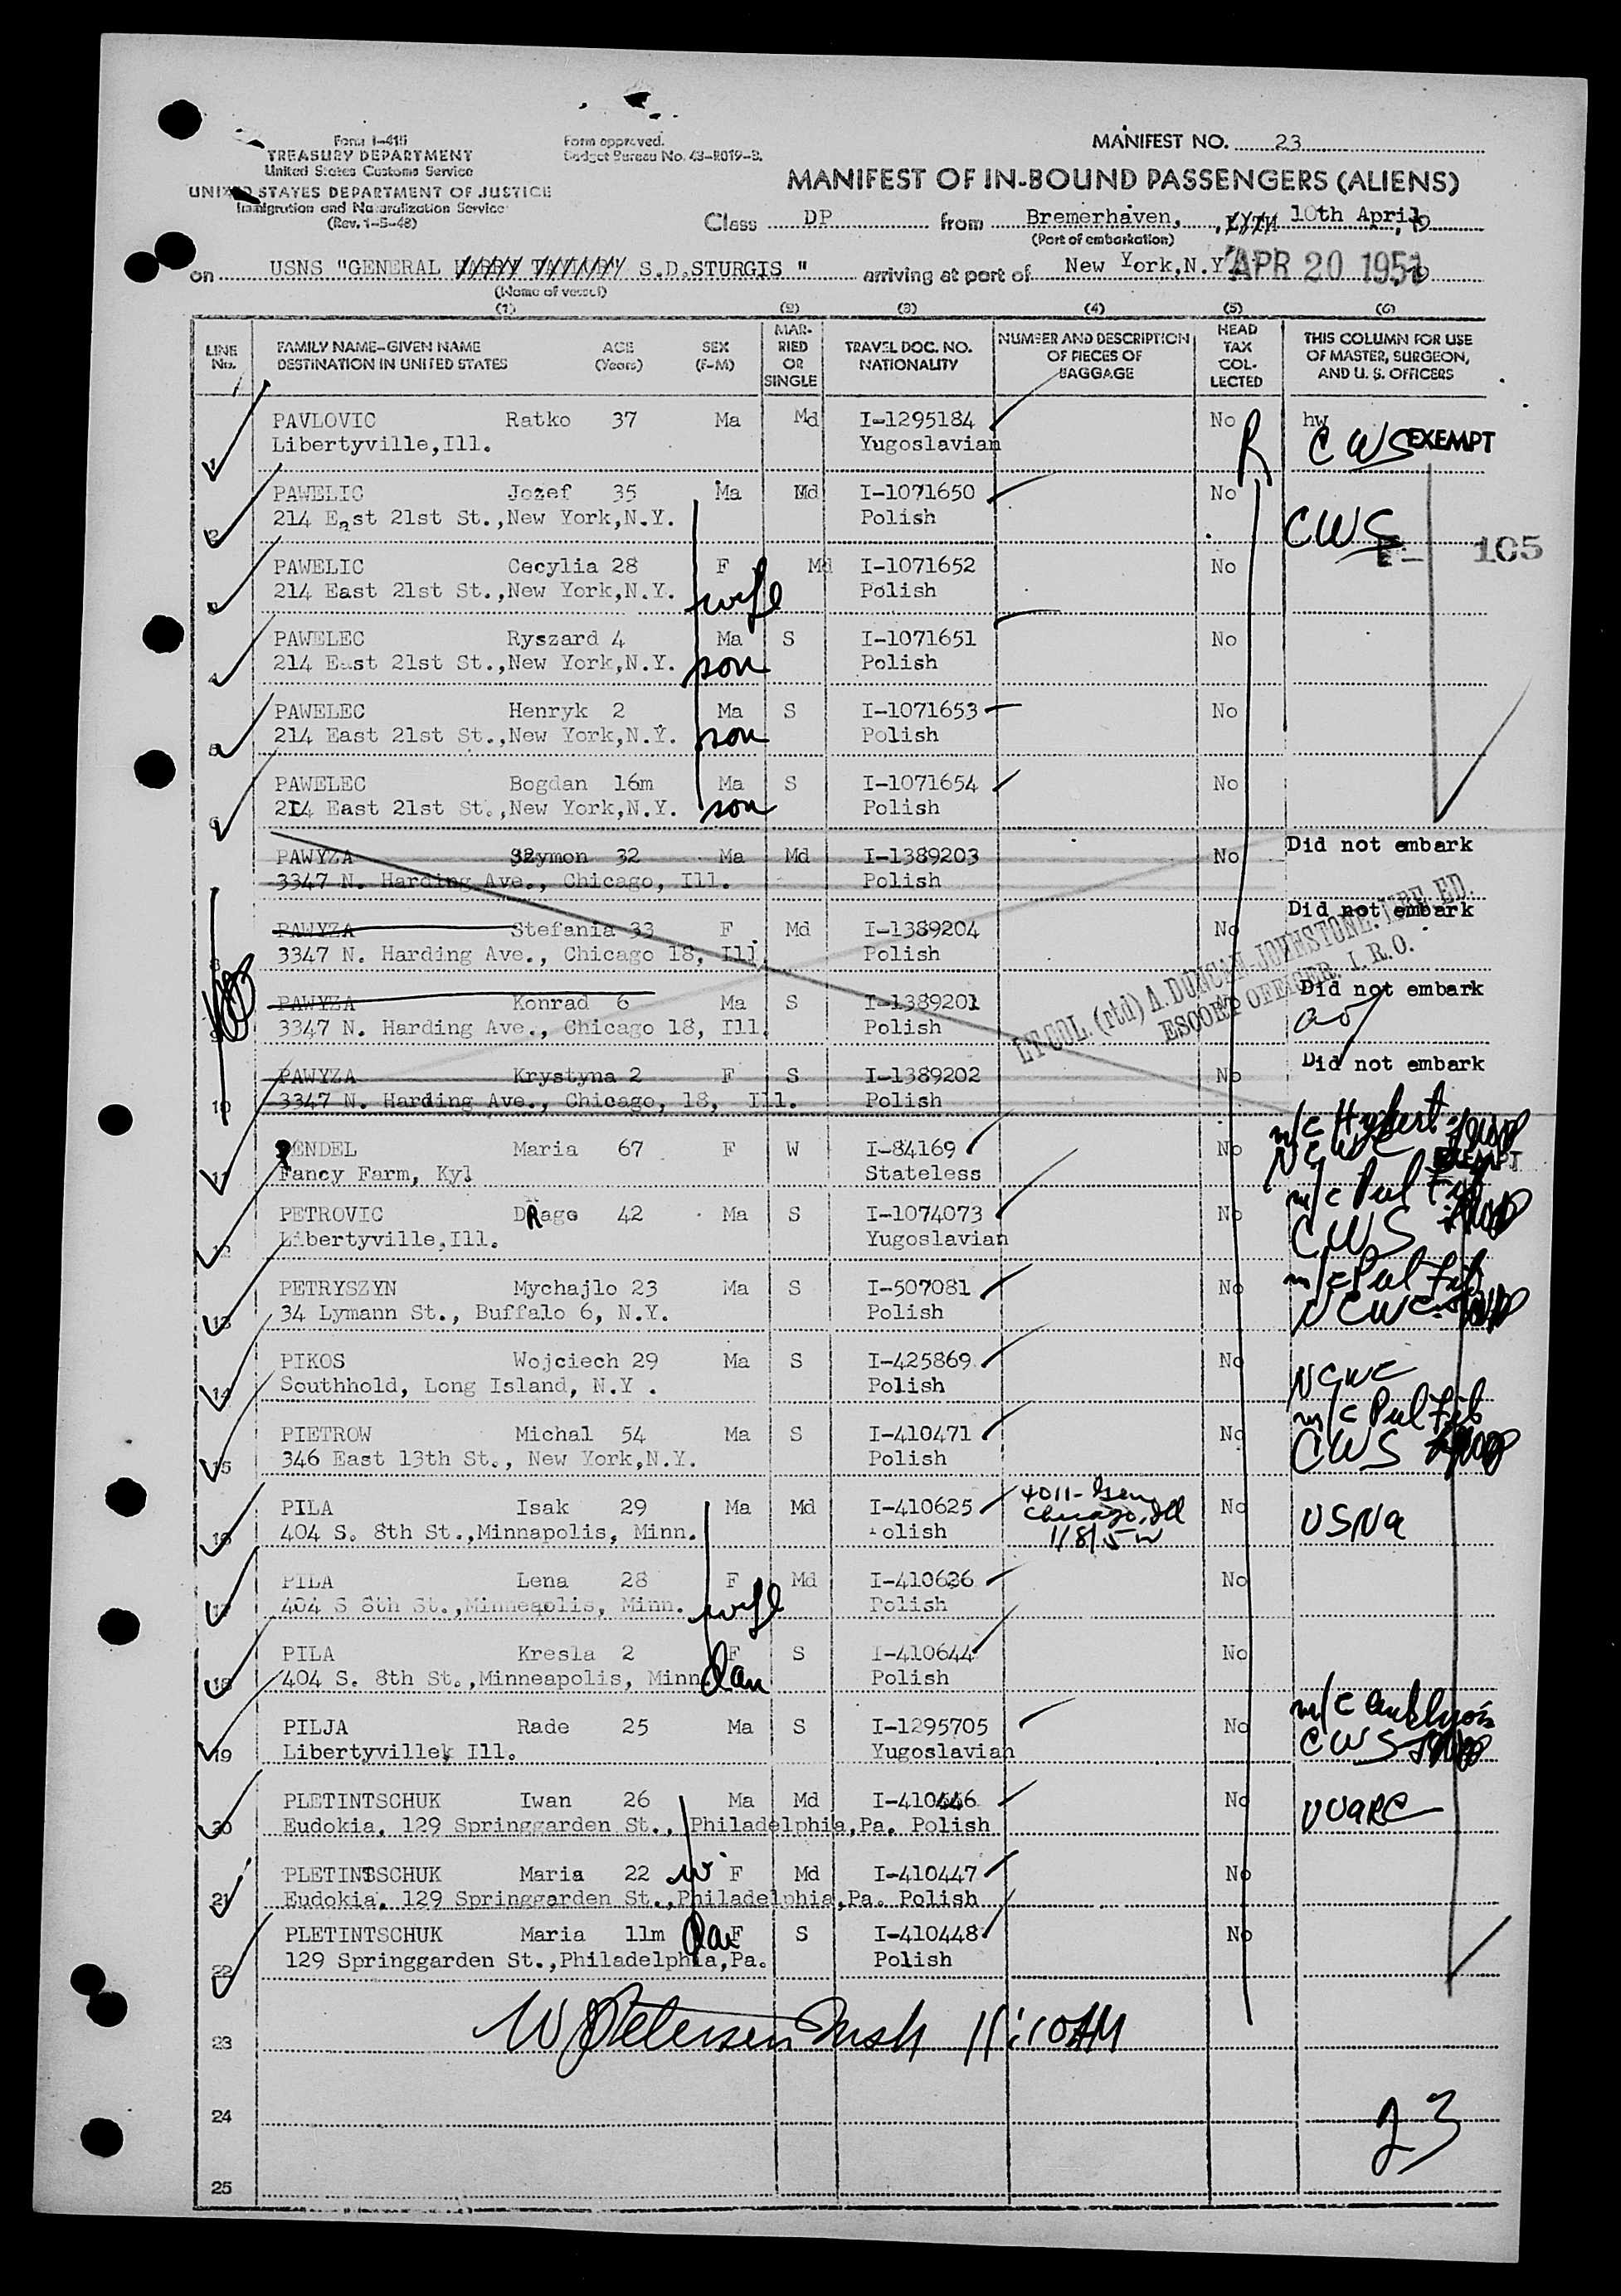 Form I-415
TREASURY DEPARTMENT
United States Customs Service
UNITED STATES DEPARTMENT OF JUSTICE
Immigration and Naturalization Service
(Rev. 1-5-48)
Form approved.
Budget Bureau No. 43-R019-3.
MANIFEST NO. 23
MANIFEST OF IN-BOUND PASSENGERS (ALIENS)
Class DP from Bremerhaven, 10th April, 19
(Port of embarkation)
on USNS "GENERAL S.D.STURGIS " arriving at port of New York,N.Y. APR 20 1951
(Name of vessel)
(1) (2) (3) (4) (5) (6)
LINE No. FAMILY NAME-GIVEN NAME DESTINATION IN UNITED STATES AGE (Years) SEX (F-M) MARRIED OR SINGLE TRAVEL DOC. NO. NATIONALITY NUMBER AND DESCRIPTION OF PIECES OF BAGGAGE HEAD TAX COLLECTED THIS COLUMN FOR USE OF MASTER, SURGEON, AND U. S. OFFICERS
1 PAVLOVIC Ratko 37 Ma Md I-1295184 No hw
Libertyville,Ill. Yugoslavian R CWS EXEMPT
2 PAWELIC Jozef 35 Ma Md I-1071650 No
214 East 21st St.,New York,N.Y. Polish CWS
105
3 PAWELIC Cecylia 28 F Md I-1071652 No
214 East 21st St.,New York,N.Y. wife Polish
4 PAWELEC Ryszard 4 Ma S I-1071651 No
214 East 21st St.,New York,N.Y. son Polish
5 PAWELEC Henryk 2 Ma S I-1071653 No
214 East 21st St.,New York,N.Y. son Polish
6 PAWELEC Bogdan 16m Ma S I-1071654 No
214 East 21st St.,New York,N.Y. son Polish
PAWYZA Szymon 32 Ma Md I-1389203 No Did not embark
3347 N. Harding Ave., Chicago, Ill. Polish
8 PAWYZA Stefania 33 F Md I-1389204 No Did not embark
3347 N. Harding Ave., Chicago 18, Ill. Polish
LT-COL. (rtd) A. DUNCAN-JOHNSTONE.
ESCORT OFFICER. I. R. O.
9 PAWYZA Konrad 6 Ma S I-1389201 No Did not embark
3347 N. Harding Ave., Chicago 18, Ill. Polish
10 PAWYZA Krystyna 2 F S I-1389202 No Did not embark
3347 N. Harding Ave., Chicago, 18, Ill. Polish
11 PENDEL Maria 67 F W I-84169 No NCWC EXEMPT
Fancy Farm, Kyl Stateless
m/c Pul Fib
12 PETROVIC DRago 42 Ma S I-1074073 No CWS
Libertyville,Ill. Yugoslavian
m/c Pul Fib
13 PETRYSZYN Mychajlo 23 Ma S I-507081 No NCWC
34 Lymann St., Buffalo 6, N.Y. Polish
14 PIKOS Wojciech 29 Ma S I-425869 No NCWC
Southhold, Long Island, N.Y . Polish
m/c Pul Fib
15 PIETROW Michal 54 Ma S I-410471 No CWS
346 East 13th St., New York,N.Y. Polish
16 PILA Isak 29 Ma Md I-410625 No USNA
404 S. 8th St.,Minnapolis, Minn. olish Chicago, Ill
17 PILA Lena 28 F Md I-410626 No
404 S 8th St.,Minneapolis, Minn. wife Polish
18 PILA Kresla 2 F S I-410644 No
404 S. 8th St.,Minneapolis, Minn. dau Polish
19 PILJA Rade 25 Ma S I-1295705 No m/c
Libertyville, Ill. Yugoslavian CWS
20 PLETINTSCHUK Iwan 26 Ma Md I-410446 No UUARC
Eudokia, 129 Springgarden St., Philadelphia,Pa. Polish
21 PLETINTSCHUK Maria 22 w F Md I-410447 No
Eudokia, 129 Springgarden St.,Philadelphia,Pa. Polish
22 PLETINTSCHUK Maria 11m dau F S I-410448 No
129 Springgarden St.,Philadelphia,Pa. Polish
23 W Petersen Insp 11:10 AM
24
23
25